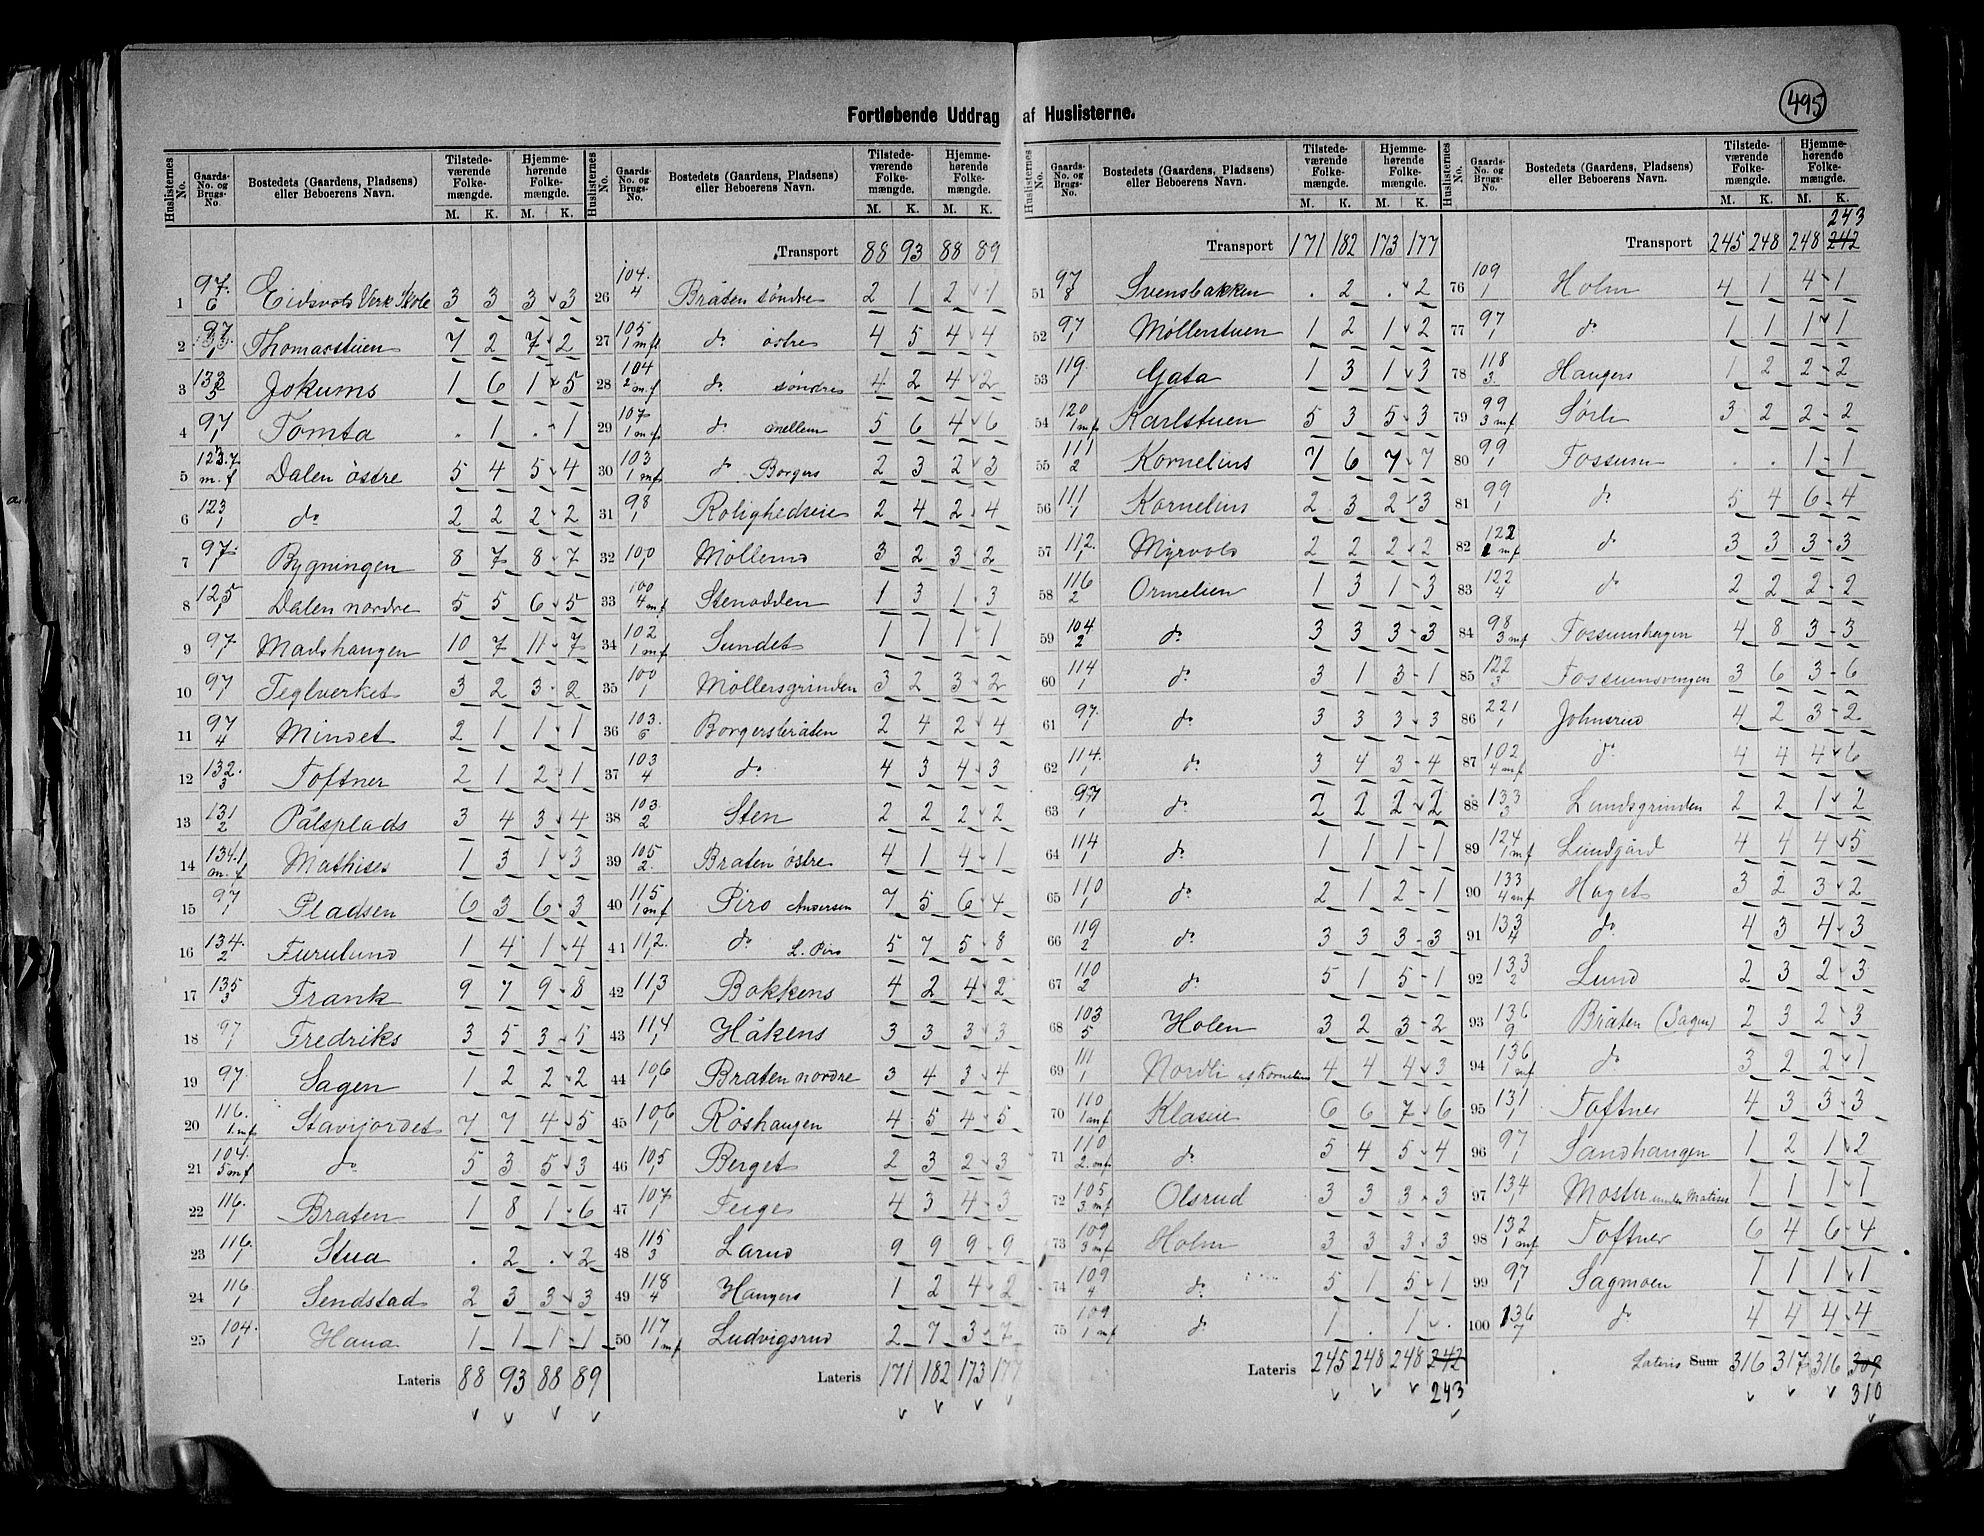 495
Fortløbende Uddrag af Huslisterne.
Huslisternes No. | Gaards-No. og Brugs-No. | Bostedets (Gaardens, Pladsens) eller Beboerens Navn. | Tilstede-værende Folke-mængde. M. K. | Hjemme-hørende Folke-mængde. M. K.
1 97. 6 Eidsvols Verk Skole 3 3 3 3
2 97 1 Thomasstuen 7 2 7 2
3 133 5 Jokums 1 6 1 5
4 97 1 Tomta . 1 . 1
5 123.7 m.f Dalen østre 5 4 5 4
6 123 1 do 2 2 2 2
7 97. 1 Bygningen 8 7 8 7
8 125 1 Dalen nordre 5 5 6 5
9 97 1 Madshaugen 10 7 11 7
10 97 Teglverket 3 2 3 2
11 97 4 Mindet 2 1 1 1
12 132. 3 Toftner 2 1 2 1
13 131 2 Pålsplads 3 4 3 4
14 134.1 m.f Mathises 1 3 1 3
15 97 1 Pladsen 6 3 6 3
16 134. 2 Furulund 1 4 1 4
17 135 3 Frank 9 7 9 8
18 97 Fredriks 3 5 3 5
19 97. 1 Sagen 1 2 2 2
20 116. 1 mf Stavijordet 7 7 4 5
21 104. 5 mf do 5 3 5 3
22 116. 1 Braten 1 8 1 6
23 116. 1 Stua . 2 . 2
24 116. 1 Sendstad 2 3 3 3
25 104. 1 Hana 1 1 1 1
Lateris 88 93 88 89
Transport 88 93 88 89
26 104. 4 Bråten søndre 2 1 2 1
27 105 1 mf do østre 4 5 4 4
28 104 2 m.f do søndre 4 2 4 2
29 107 1 mf do mellem 5 6 4 6
30 103 1 mf do Borgers 2 3 2 3
31 98 1 Rolighedseie 2 4 2 4
32 100 1 Møllerud 3 2 3 2
33 100 4 mf Stenodden 1 3 1 3
34 102 1 mf Sundet 1 1 1 1
35 100 1 Møllersgrinden 3 2 3 2
36 103. 6 Borgersbråten 2 4 2 4
37 103 4 do 4 3 4 3
38 103. 2 Sten 2 2 2 2
39 105 2. Braten østre 4 1 4 1
40 115 1 mf Piro Andersen 7 5 6 4
41 112. 1 do L. Piro 5 7 5 8
42 113 1 Bakkens 4 2 4 2
43 114 1 Håkens 3 3 3 3
44 106 1 Braten nordre 3 4 3 4
45 106 1 Røshaugen 4 5 4 5
46 105 1 Berget 2 3 2 3
47 107 1 Teige 4 3 4 3
48 115 3 Larud 9 9 9 9
49 118 4 Haugers 1 2 4 2
50 117 1 mf Ludvigsrud 2 7 3 7
Lateris 171 182 173 177
Transport 171 182 173 177
51 97 8 Svensbakken . 2 . 2
52 97 1 Møllerstuen 1 2 1 2
53 119 1 Gata 1 3 1 3
54 120 1 mf Karlstuen 5 3 5 3
55 111 2 Kornelius 7 6 7 7
56 111 1 Kornelius 2 3 2 3
57 112. 1 Myrvols 2 2 2 2
58 116 2 Ormelien 1 3 1 3
59 104 2 do 3 3 3 3
60 114 1 do 3 1 3 1
61 97. 1 do 3 3 3 3
62 114. 1 do 3 4 3 4
63 97 1 do 2 2 2 2
64 114 1 do 1 1 1 1
65 110 1 do 2 1 2 1
66 119 2 do 3 3 3 3
67 110 2 do 5 1 5 1
68 103 5 Holen 3 2 3 2
69 111 1 Nordli af Kornelius 4 4 4 3
70 110 1 mf Klaseie 6 6 7 6
71 110 2. mf do 5 4 5 4
72 105 3. mf Olsrud 3 3 3 3
73 109 3 mf Holm 3 3 3 3
74 109 4 do 5 1 5 1
75 109 1 mf do 1 . 1 .
Lateris 245 248 248 242 243
Transport 245 248 248 242 243
76 109 1 Holm 4 1 4 1
77 97 1 do 1 1 1 1
78 118 3. Haugers 1 2 2 2
79 99 3 mf Sørli 3 2 2 2
80 99 1 Fossum . . 1 1
81 99 1 do 5 4 6 4
82 122 1 mf do 3 3 3 3
83 122 4 do 2 2 2 2
84 98 3 mf Fossumshagen 4 8 3 3
85 122 3 Fossumsvengen 3 6 3 6
86 221 1 Johnsrud 4 2 3 2
87 102 4 mf do 4 4 4 6
88 133 3 Lundsgrinden 2 2 1 2
89 124 1 mf Lundgård 4 4 4 5
90 133 4 mf Haget 3 2 3 2
91 133 4 do 4 3 4 3
92 133 2 Lund 2 3 2 3
93 136 9 Bråten (Sagen) 2 3 2 3
94 136 1 mf do 3 2 2 1
95 131 1 Toftner 4 3 3 3
96 97 1 Sandhaugen 1 2 1 2
97 134 1 Mostu under Matises 1 1 1 1
98 132 1 mf Toftner 6 4 6 4
99 97 1 Sagmoen 1 1 1 1
100 136 7 do 4 4 4 4
Lateris Sum 316 317 316 309 310